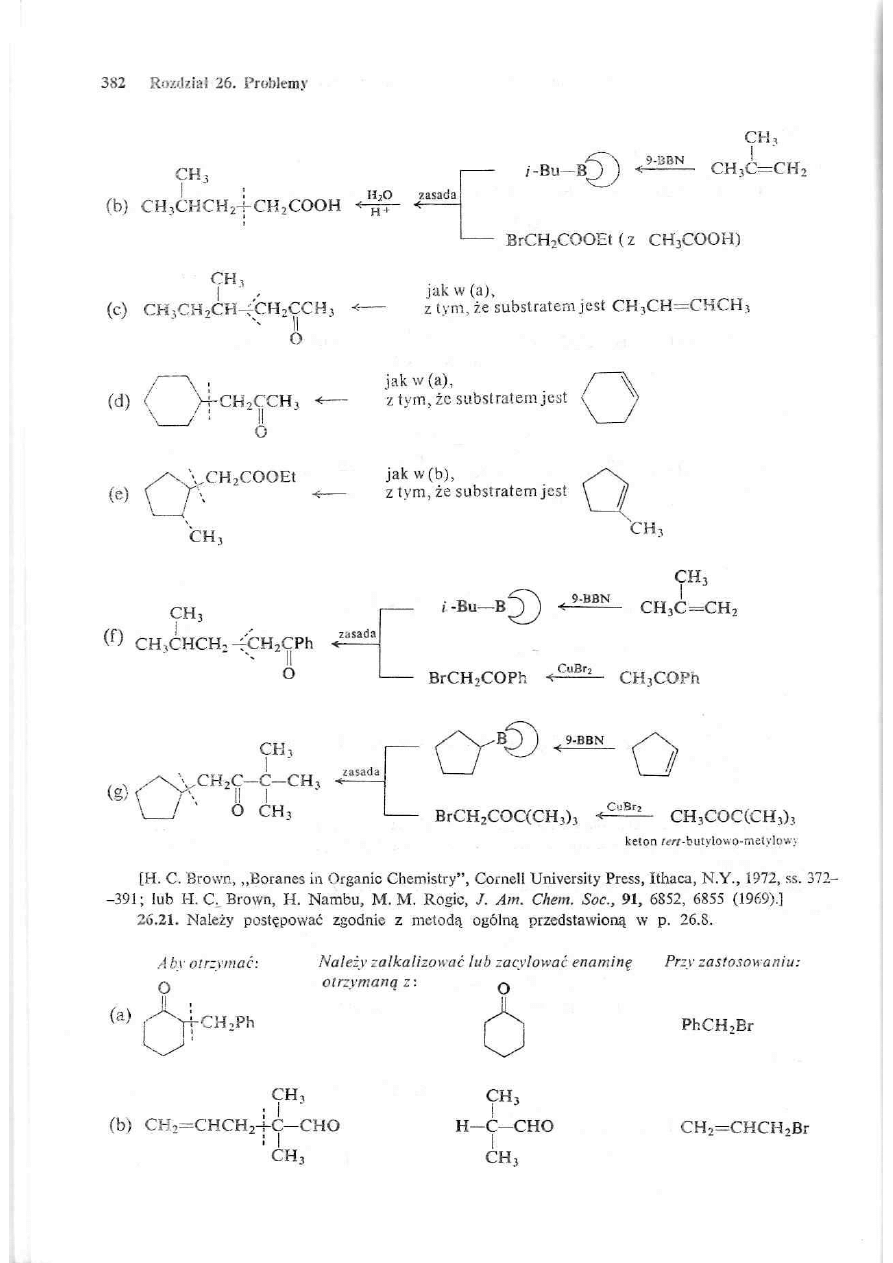 382 Rozdział 26. Problemy
(b) CH₃CHCH₂CH₂COOH H₂O H⁺ zasada i-Bu—B 9-BBN CH₃C=CH₂
CH₃ CH₃
BrCH₂COOEt (z CH₃COOH)
CH₃
(c) CH₃CH₂CH—CH₂CCH₃ jak w (a),
O z tym, że substratem jest CH₃CH=CHCH₃
(d) CH₂CCH₃ jak w (a),
O z tym, że substratem jest
(e) CH₂COOEt jak w (b),
CH₃ z tym, że substratem jest CH₃
CH₃ i-Bu—B 9-BBN CH₃C=CH₂
CH₃
(f) CH₃CHCH₂—CH₂CPh zasada
O BrCH₂COPh CuBr₂ CH₃COPh
CH₃ B 9-BBN
(g) CH₂C—C—CH₃ zasada
O CH₃ BrCH₂COC(CH₃)₃ CuBr₂ CH₃COC(CH₃)₃
keton tert-butylowo-metylowy
[H. C. Brown, „Boranes in Organic Chemistry”, Cornell University Press, Ithaca, N.Y., 1972, ss. 372–
–391; lub H. C. Brown, H. Nambu, M. M. Rogic, J. Am. Chem. Soc., 91, 6852, 6855 (1969).]
26.21. Należy postępować zgodnie z metodą ogólną przedstawioną w p. 26.8.
Aby otrzymać: Należy zalkalizować lub zacylować enaminę Przy zastosowaniu:
otrzymaną z:
O O
(a) CH₂Ph PhCH₂Br
CH₃ CH₃
(b) CH₂=CHCH₂—C—CHO H—C—CHO CH₂=CHCH₂Br
CH₃ CH₃